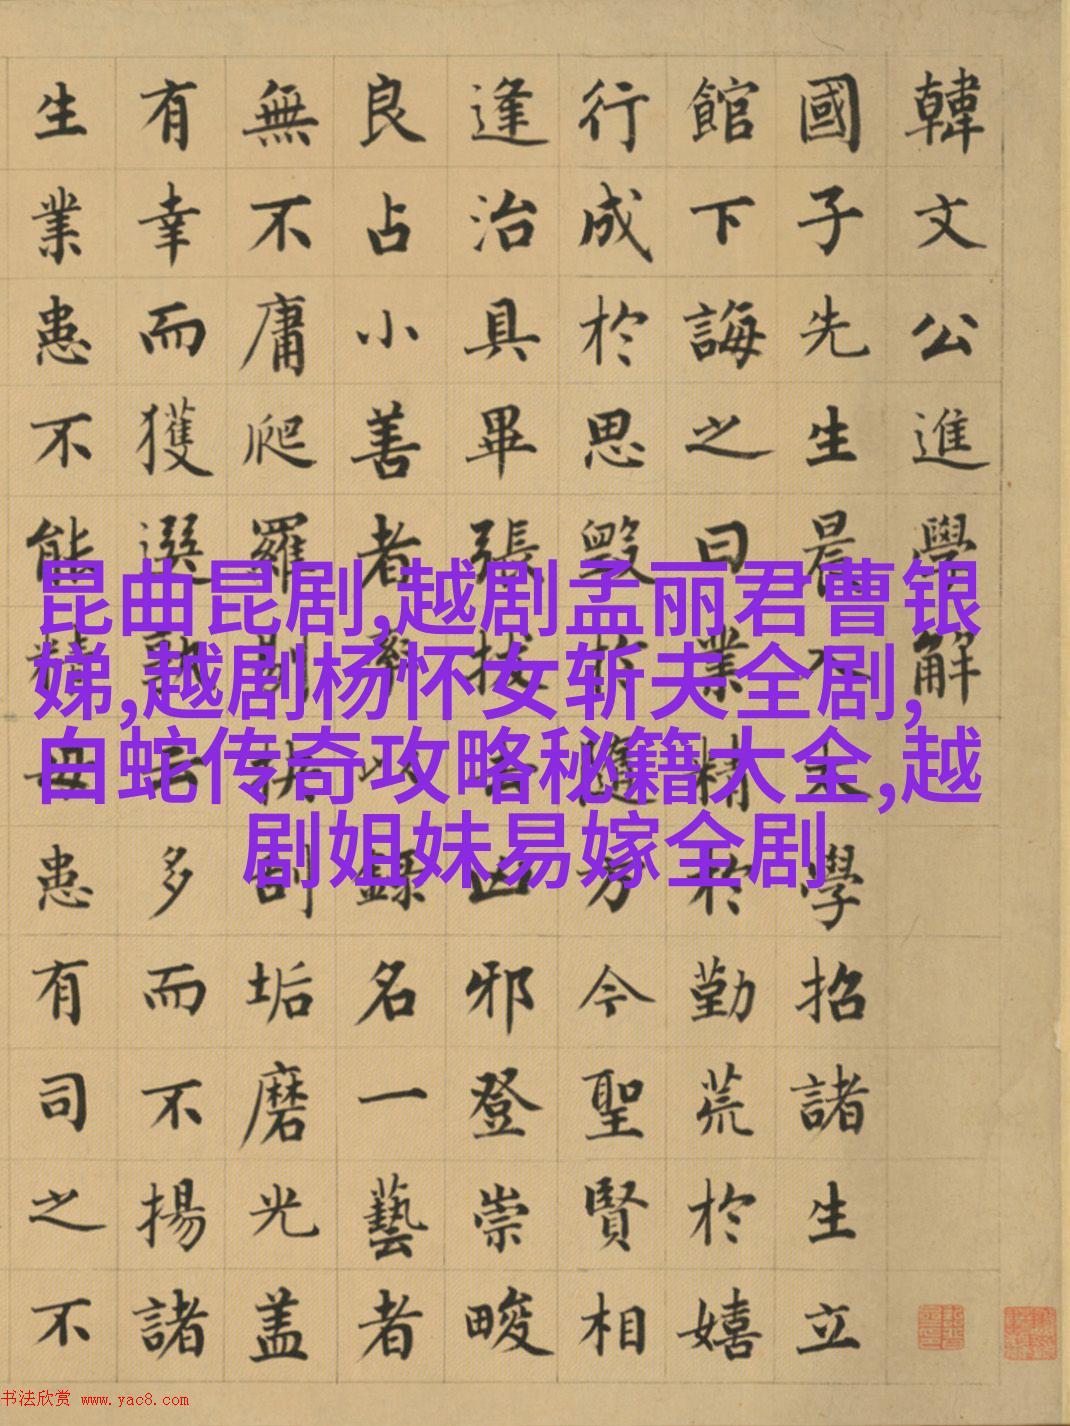 韓文公進學解
國子先生晨入太學招諸生立
館下誨之曰業精於勤荒於嬉
行成於思毀於隨方今聖賢相
逢治具畢張拔去凶邪登崇畯
良占小善者率以錄名一藝者
無不庸爬羅剔抉刮垢磨光盖
有幸而獲選孰云多而不揚諸
生業患不能精毋患有司之不
昆曲昆剧,越剧孟丽君曹银
娣,越剧杨怀女斩夫全剧,
白蛇传奇攻略秘籍大全,越
剧姐妹易嫁全剧
书法欣赏 www.yac8.com